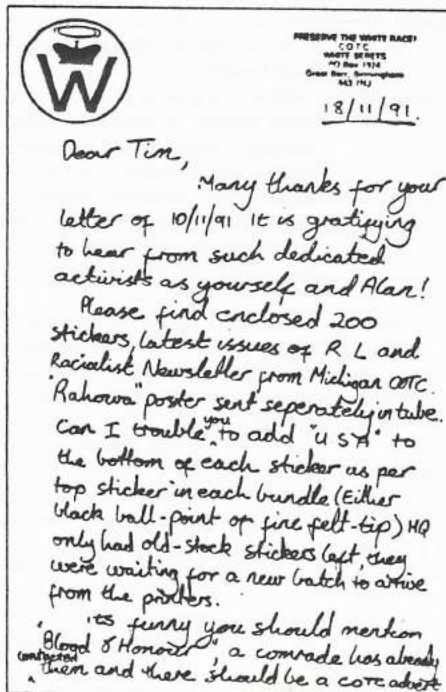 W
PRESERVE THE WHITE RACE!
COTC
WHITE BERETS
PO Box 1974
Great Barr, Birmingham
18/11/91.
Dear Tim,
Many thanks for your
letter of 10/11/91 It is gratifying
to hear from such dedicated
activists as yourself and Alan!
Please find enclosed 200
stickers, latest issues of R L and
Racialist Newsletter from Michigan COTC.
"Rahowa" poster sent seperately in tube.
Can I trouble you to add "USA" to
the bottom of each sticker as per
top sticker in each bundle (Either
black ball-point or fine felt-tip) HQ
only had old-stock stickers left, they
were waiting for a new batch to arrive
from the printers.
its funny you should mention
"Blood & Honour", a comrade has already
contacted them and there should be a COTC advert